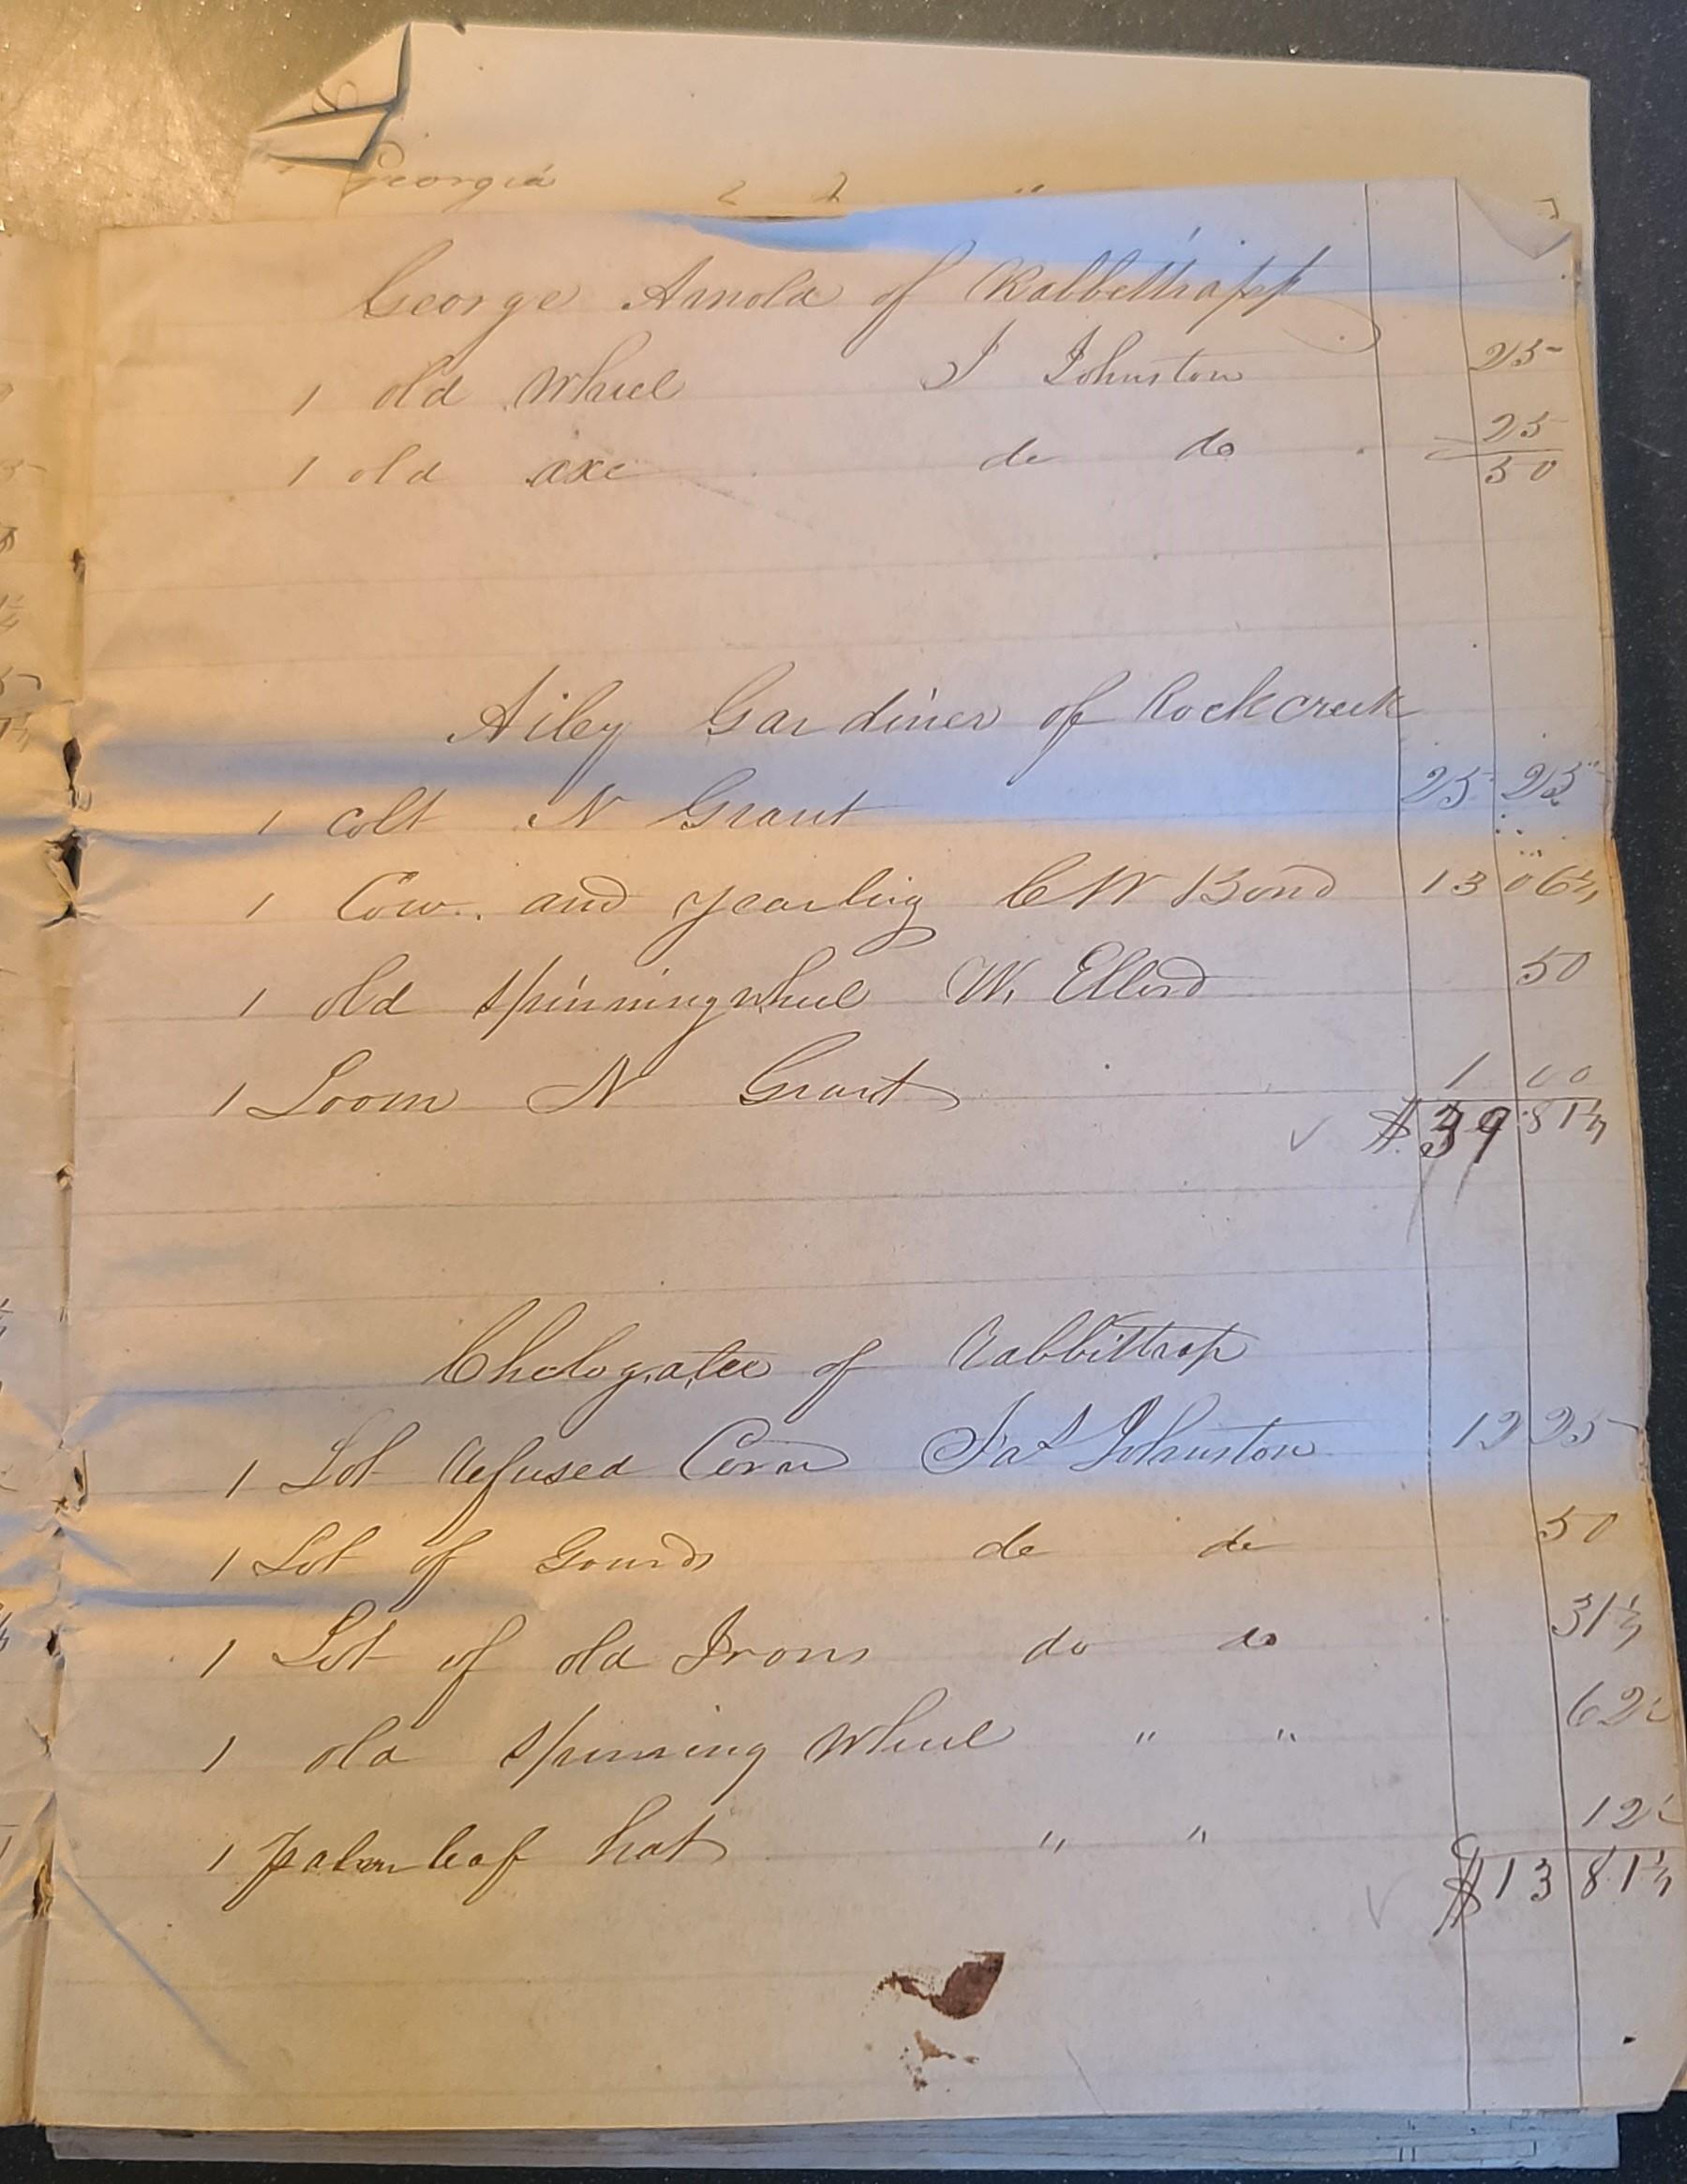 Georgia
George Arnold of Rabbettrapp
1 old Wheel J Johnston 25
1 old axe do do 25
50
Ailey Gardiner of Rockcreek
1 Colt N Grant 25 25
1 Cow and yearling C W Bond 13 06¼
1 old spinningwheel W. Ellord 50
1 Loom N Grant 1 00
$39 81¼
of Rabbittrap
1 Lot Refused Corn Jas Johnston 12 25
1 Lot of Gourds do do 50
1 Lot of old Irons do do 31¼
1 old Spinning Wheel " " 62½
1 palm leaf hat " " 12½
$13 81¼